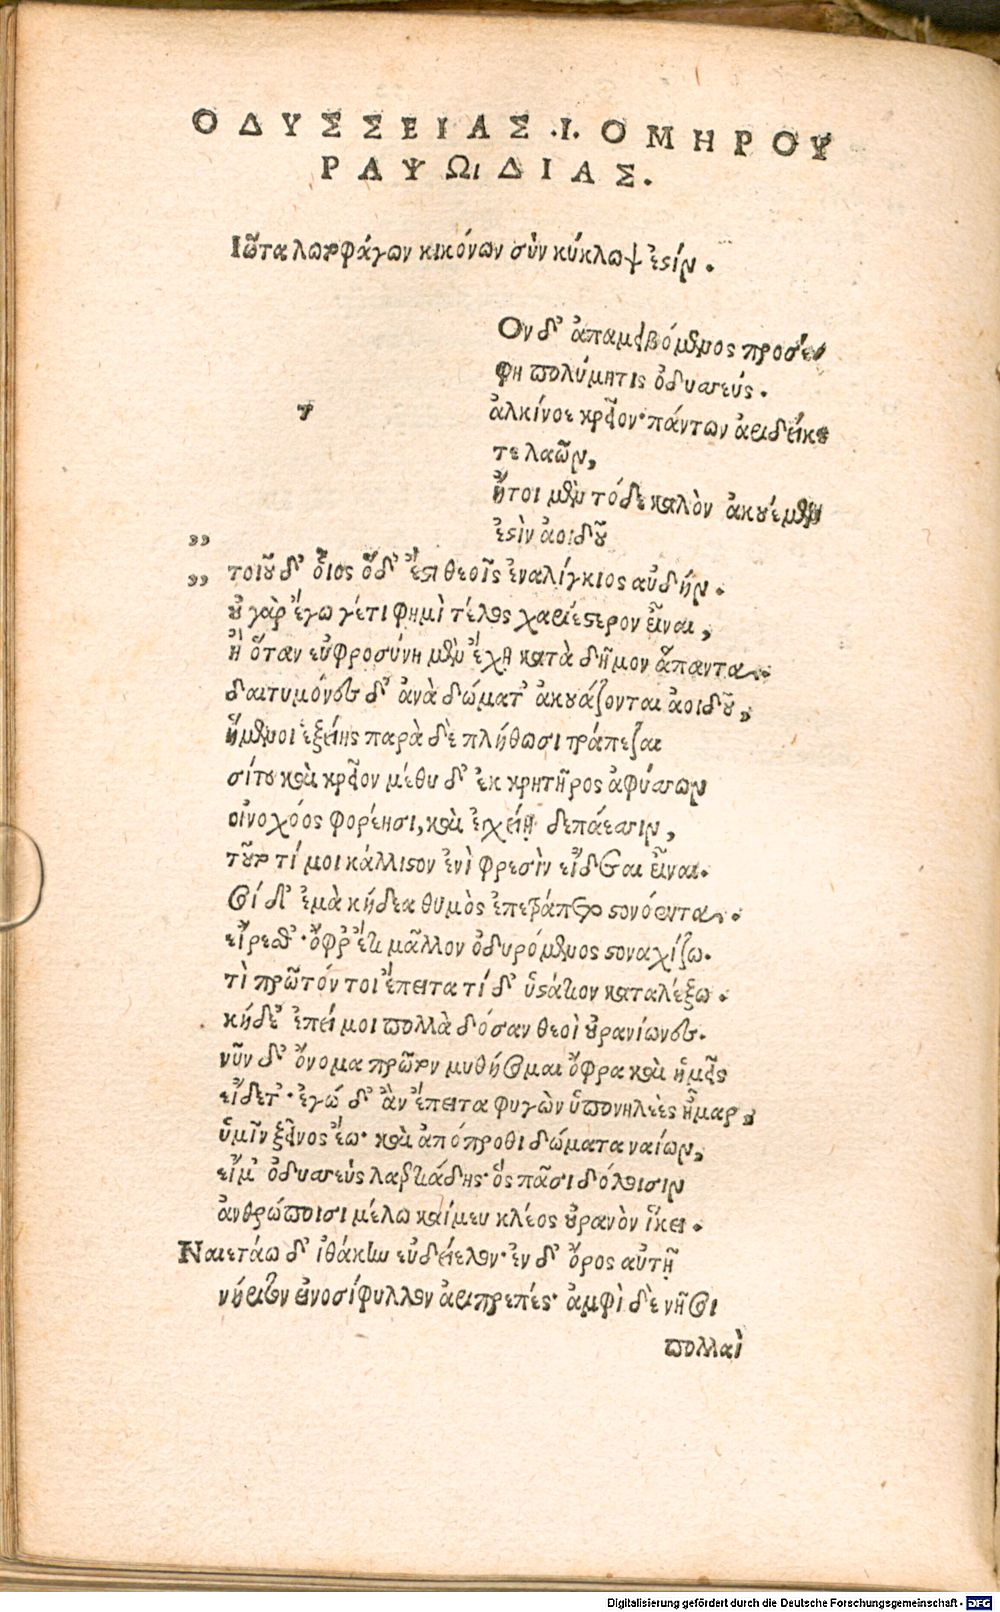 ΟΔΥΣΣΕΙΑΣ .Ι. ΟΜΗΡΟΥ
ΡΑΨΩΙΔΙΑΣ.
Ἰῶτα λωτοφάγων κικόνων σὺν κύκλωψ ἐστίν.
Ον δ' ἀπαμειβόμενος προσέ
φη πολύμητις ὀδυσσεύς.
τ
ἀλκίνοε κρεῖον· πάντων ἀριδείκε
τε λαῶν,
ἤτοι μὲν τόδε καλὸν ἀκουέμεν
ἐστὶν ἀοιδοῦ
„ τοιοῦδ' οἷος ὅδ' ἐστὶ θεοῖς ἐναλίγκιος αὐδήν.
„ οὐ γὰρ ἔγω γέ τι φημὶ τέλος χαριέστερον εἶναι,
ἢ ὅταν εὐφροσύνη μὲν ἔχῃ κατὰ δῆμον ἅπαντα.
δαιτυμόνες δ' ἀνὰ δώματ' ἀκουάζονται ἀοιδοῦ,
ἥμενοι ἑξείης παρὰ δὲ πλήθωσι τράπεζαι
σίτου καὶ κρεῖον μέθυ δ' ἐκ κρητῆρος ἀφύσσων
οἰνοχόος φορέησι, καὶ ἐγχείῃ δεπάεσσιν,
τοῦτό τί μοι κάλλιστον ἐνὶ φρεσὶν εἴδεται εἶναι.
σοὶ δ' ἐμὰ κήδεα θυμὸς ἐπετράπετο στονόεντα.
εἴρεσθ'· ὄφρ' ἔτι μᾶλλον ὀδυρόμενος στοναχίζω.
τὶ πρῶτόν τοι ἔπειτα τί δ' ὑστάτιον καταλέξω.
κήδε' ἐπεί μοι πολλὰ δόσαν θεοὶ οὐρανίωνες.
νῦν δ' ὄνομα πρῶτον μυθήσομαι ὄφρα καὶ ἡμεῖς
εἴδετ'· ἐγώ δ' ἂν ἔπειτα φυγὼν ὑπο νηλεὲς ἦμαρ,
ὑμῖν ξεῖνος ἔω· καὶ ἀπόπροθι δώματα ναίων,
εἴμ' ὀδυσσεὺς λαερτιάδης· ὃς πᾶσι δόλοισιν
ἀνθρώποισι μέλω καί μευ κλέος οὐρανὸν ἵκει.
Ναιετάω δ' ἰθάκην εὐδείελον· ἐν δ' ὄρος αὐτῇ
νήριτον εἰνοσίφυλλον ἀριπρεπές· ἀμφὶ δὲ νῆσοι
πολλαὶ
Digitalisierung gefördert durch die Deutsche Forschungsgemeinschaft - DFG